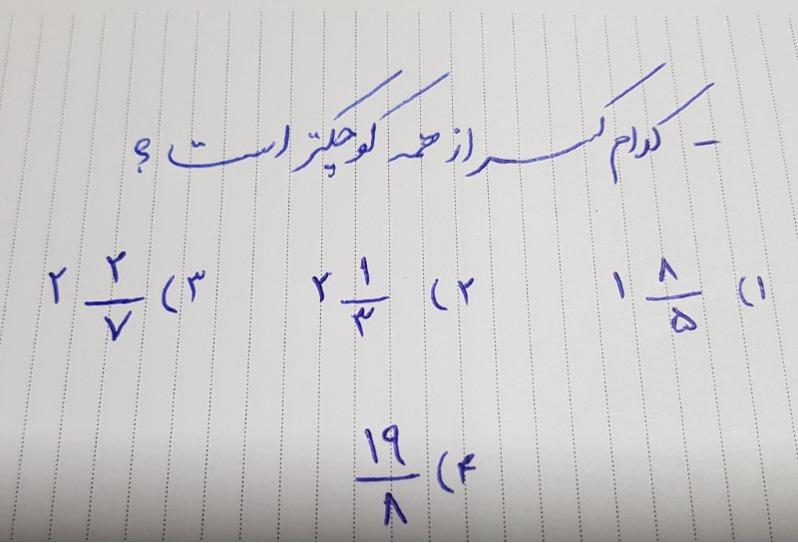 - کدام کسر از همه کوچکتر است؟
۱) ۱ ۸/۵ ۲) ۲ ۱/۳ ۳) ۲ ۲/۷
۴) ۱۹/۸